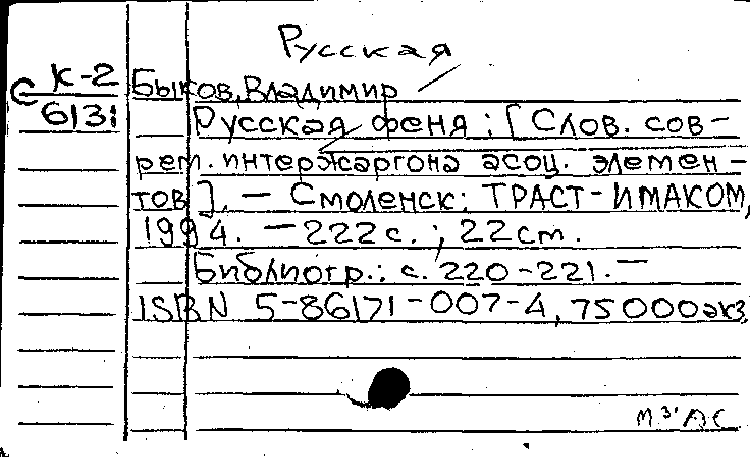 Русская
С К-2
613
Быков, Владимир
Русская феня : [Слов. сов-
рем. интержаргона асоц. элемен-
тов]. — Смоленск: ТРАСТ-ИМАКОМ,
1994. — 222 с. ; 22 см.
Библиогр.: с. 220-221. —
ISBN 5-86171-007-4, 75000 экз.